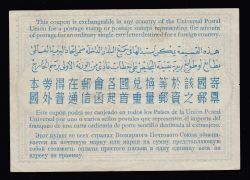 This coupon is exchangeable in any country of the Universal Postal
Union for a postage stamp or postage stamps representing the amount
of postage for an ordinary single-rate letter destined for abroad.
هذه القسيمة
本券得在郵會各國兌換等於該國寄
國外普通信函首重量郵資之郵票
Este cupón podrá ser canjeado en todos los Países de la Unión Postal
Universal por uno o varios sellos postales que representen el importe del
franqueo de una carta ordinaria de porte sencillo destinada al extranjero.
Этот купон во всех странах Всемирного Почтового Союза обмени-
вается на почтовую марку или марки на сумму представляющую
собой стоимость оплаты простого письма в одну единицу веса
адресу за границу.